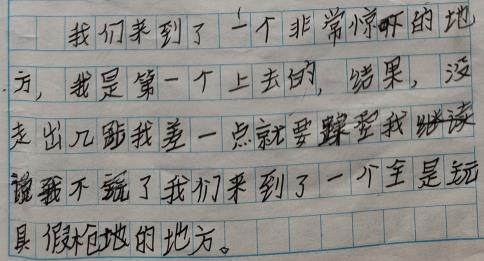 我们来到了一个非常惊吓的地
方，我是第一个上去的，结果，没
走出几步我差一点就要踩空我继续
说我不玩了我们来到了一个全是玩
具假枪地的地方。